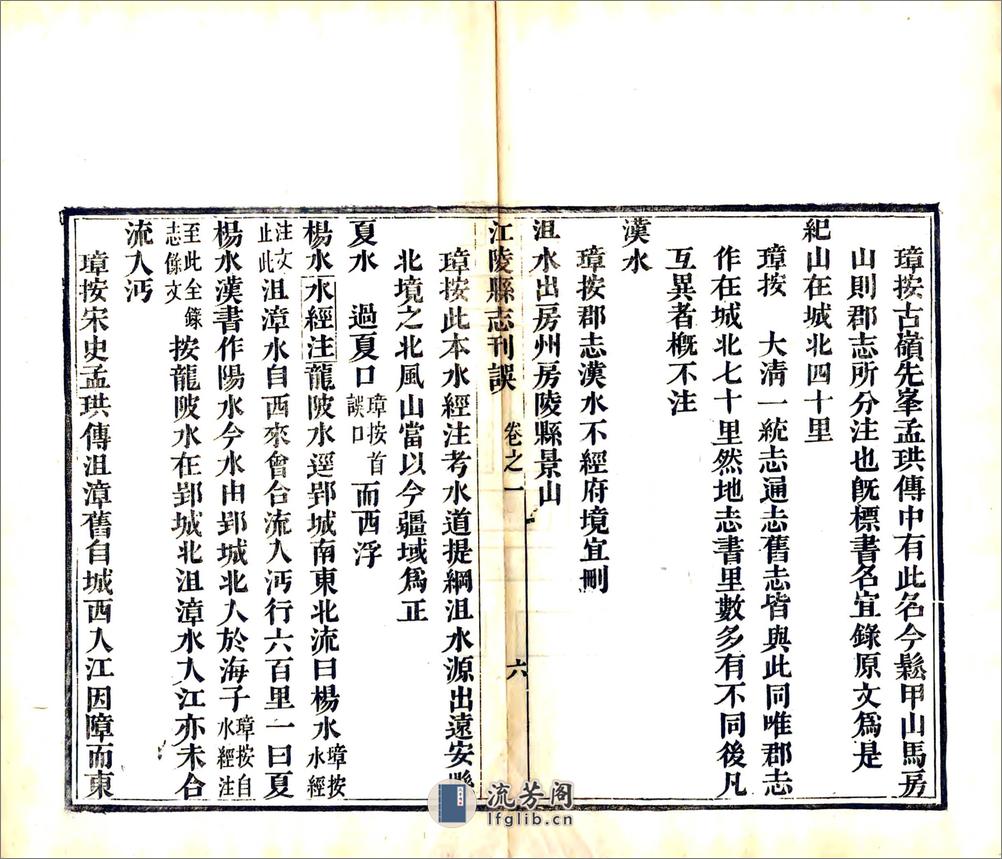 璋按古嶺先峯孟珙傳中有此名今鬆甲山馬房
山則郡志所分注也旣標書名宜錄原文爲是
紀山在城北四十里
璋按　大淸一統志通志舊志皆與此同唯郡志
作在城北七十里然地志書里數多有不同後凡
互異者槪不注
漢水
璋按郡志漢水不經府境宜刪
沮水出房州房陵縣景山
江陵縣志刊誤　卷之一　六
璋按此本水經注考水道提綱沮水源出遠安縣
北境之北風山當以今疆域爲正
夏水　過夏口璋按首誤口而西浮
楊水水經注龍陂水逕郢城南東北流曰楊水璋按水經
注文止此沮漳水自西來會合流入沔行六百里一曰夏
楊水漢書作陽水今水由郢城北入於海子璋按自水經注
至此全錄志餘文按龍陂水在郢城北沮漳水入江亦未合
流入沔
璋按宋史孟珙傳沮漳舊自城西入江因障而東
流芳阁
lfglib.cn